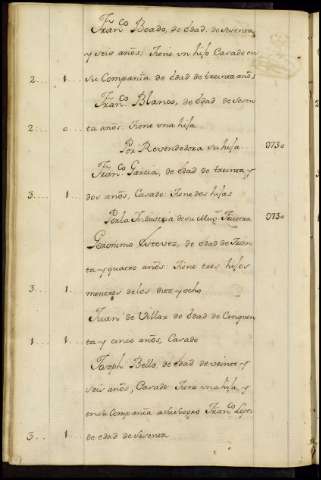 Fran.co Boado, de edad de sesenta
y seis años: Tiene vn hijo Casado en
2... 1... su Compañia de edad de treinta años
Fran.co Blanco, de edad de sesen
2... 0... ta años: Tiene vna hija
Por Revendedora su hija 0730
Fran.co Garcia, de edad de treinta y
3... 1... dos años, Casado: Tiene dos hijas
Por la Industria de su Mug.r 0730
Geronimo Estevez, de edad de
ta y quatro años: Tiene tres hijos
3... 1... menores de los diez y ocho
Juan de Villar de edad de Cinquen
1... 1... ta y cinco años, Casado
Joseph Bello, de edad de veinte y
seis años, Casado: Tiene vna hija, y
en su Compañia a su suegro Fran.co
3... 1... de edad de sesenta